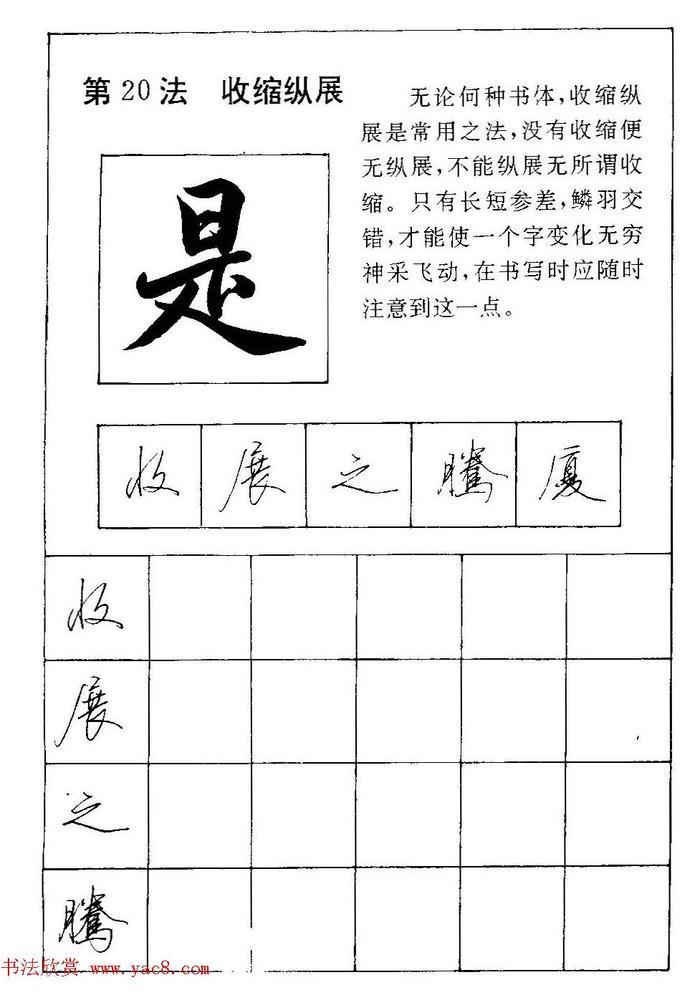 第20法 收缩纵展
无论何种书体，收缩纵
展是常用之法，没有收缩便
无纵展，不能纵展无所谓收
缩。只有长短参差，鳞羽交
错，才能使一个字变化无穷
神采飞动，在书写时应随时
注意到这一点。
是
收 展 之 騰 厦
收
展
之
騰
书法欣赏 www.yac8.com